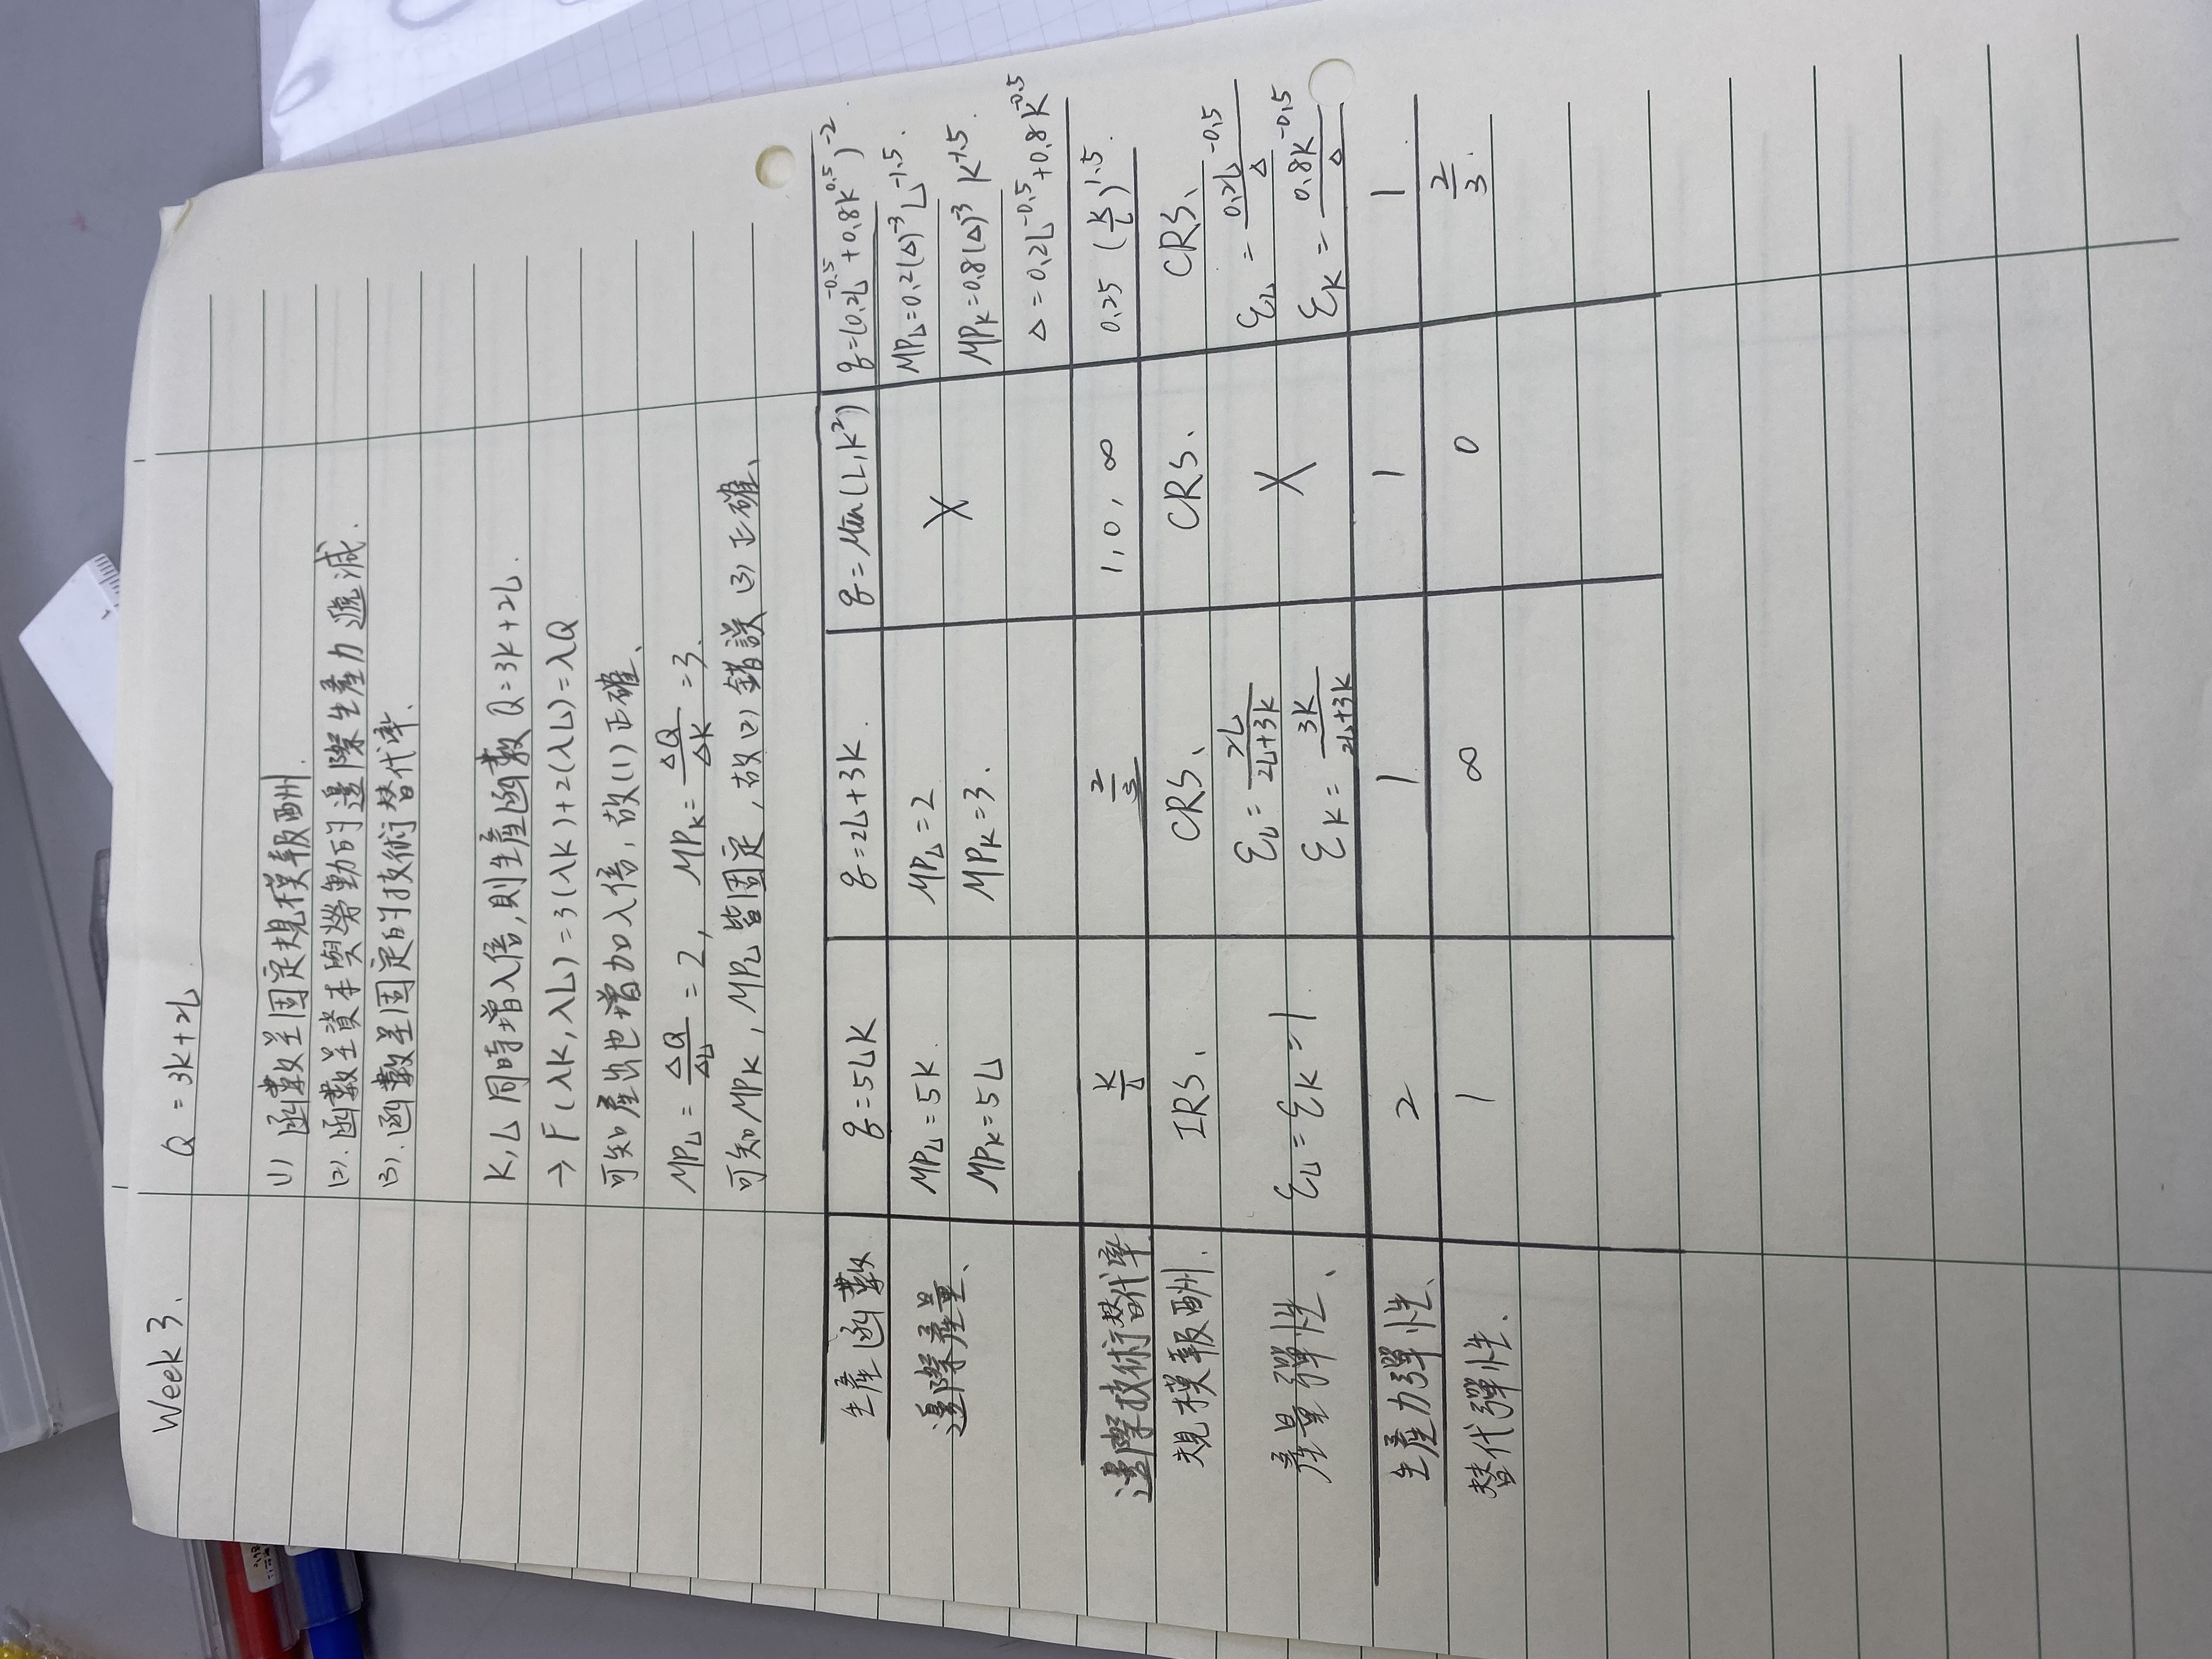 Week 3.
Q = 3K+2L
(1) 函數呈固定規模報酬.
(2). 函數呈資本與勞動的邊際生產力遞減.
(3). 函數呈固定的技術替代率.
K, L 同時增λ倍,則生產函數 Q=3K+2L.
→ F(λK, λL)=3(λK)+2(λL)=λQ
可知產出也增加λ倍, 故(1)正確、
MPL = ΔQ/ΔL = 2, MPK = ΔQ/ΔK = 3.
可知MPK, MPL皆固定, 故(2)錯誤 (3)正確、
生產函數 q=5LK q=2L+3K. q=Min(L,K²) q=(0.2L^-0.5+0.8K^0.5)^-2
邊際產量、 MPL=5K. MPL=2 X MPL=0.2(Δ)^-3 L^-1.5.
MPK=5L MPK=3. MPK=0.8(Δ)^-3 K^-1.5.
Δ=0.2L^-0.5+0.8K^-0.5
邊際技術替代率 K/L 2/3 1, 0, ∞ 0.25 (K/L)^1.5.
規模報酬. IRS、 CRS、 CRS. CRS、
產量彈性、 εL=εK=1. εL=2L/(2L+3K) X εL=0.2L^-0.5/Δ
εK=3K/(2L+3K) εK=0.8K^-0.5/Δ
生產力彈性、 2 1. 1 1.
替代彈性. 1 ∞ 0 2/3.